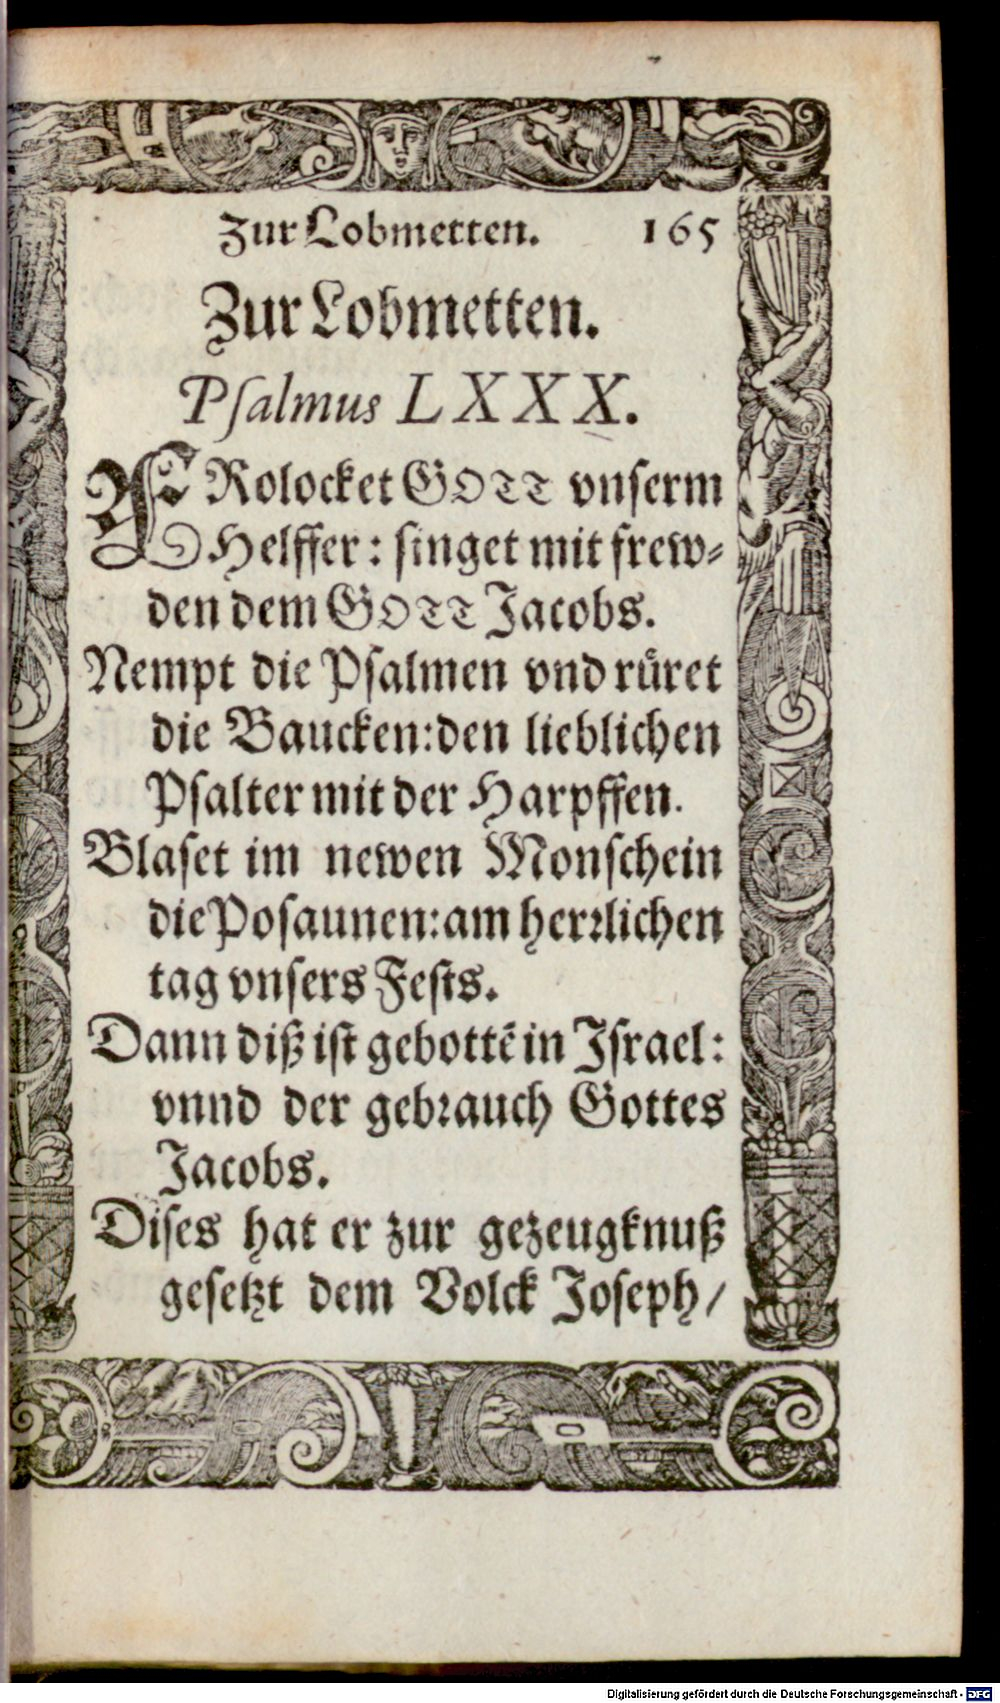 Zur Lobmetten. 165
Zur Lobmetten.
Psalmus LXXX.
FRolocket GOTT vnserm
Helffer: singet mit frew-
den dem GOTT Jacobs.
Nempt die Psalmen vnd rüret
die Baucken: den lieblichen
Psalter mit der Harpffen.
Blaset im newen Monschein
die Posaunen: am herrlichen
tag vnsers Fests.
Dann diß ist gebottē in Israel:
vnnd der gebrauch Gottes
Jacobs.
Dises hat er zur gezeugknuß
gesetzt dem Volck Joseph/
Digitalisierung gefördert durch die Deutsche Forschungsgemeinschaft - DFG